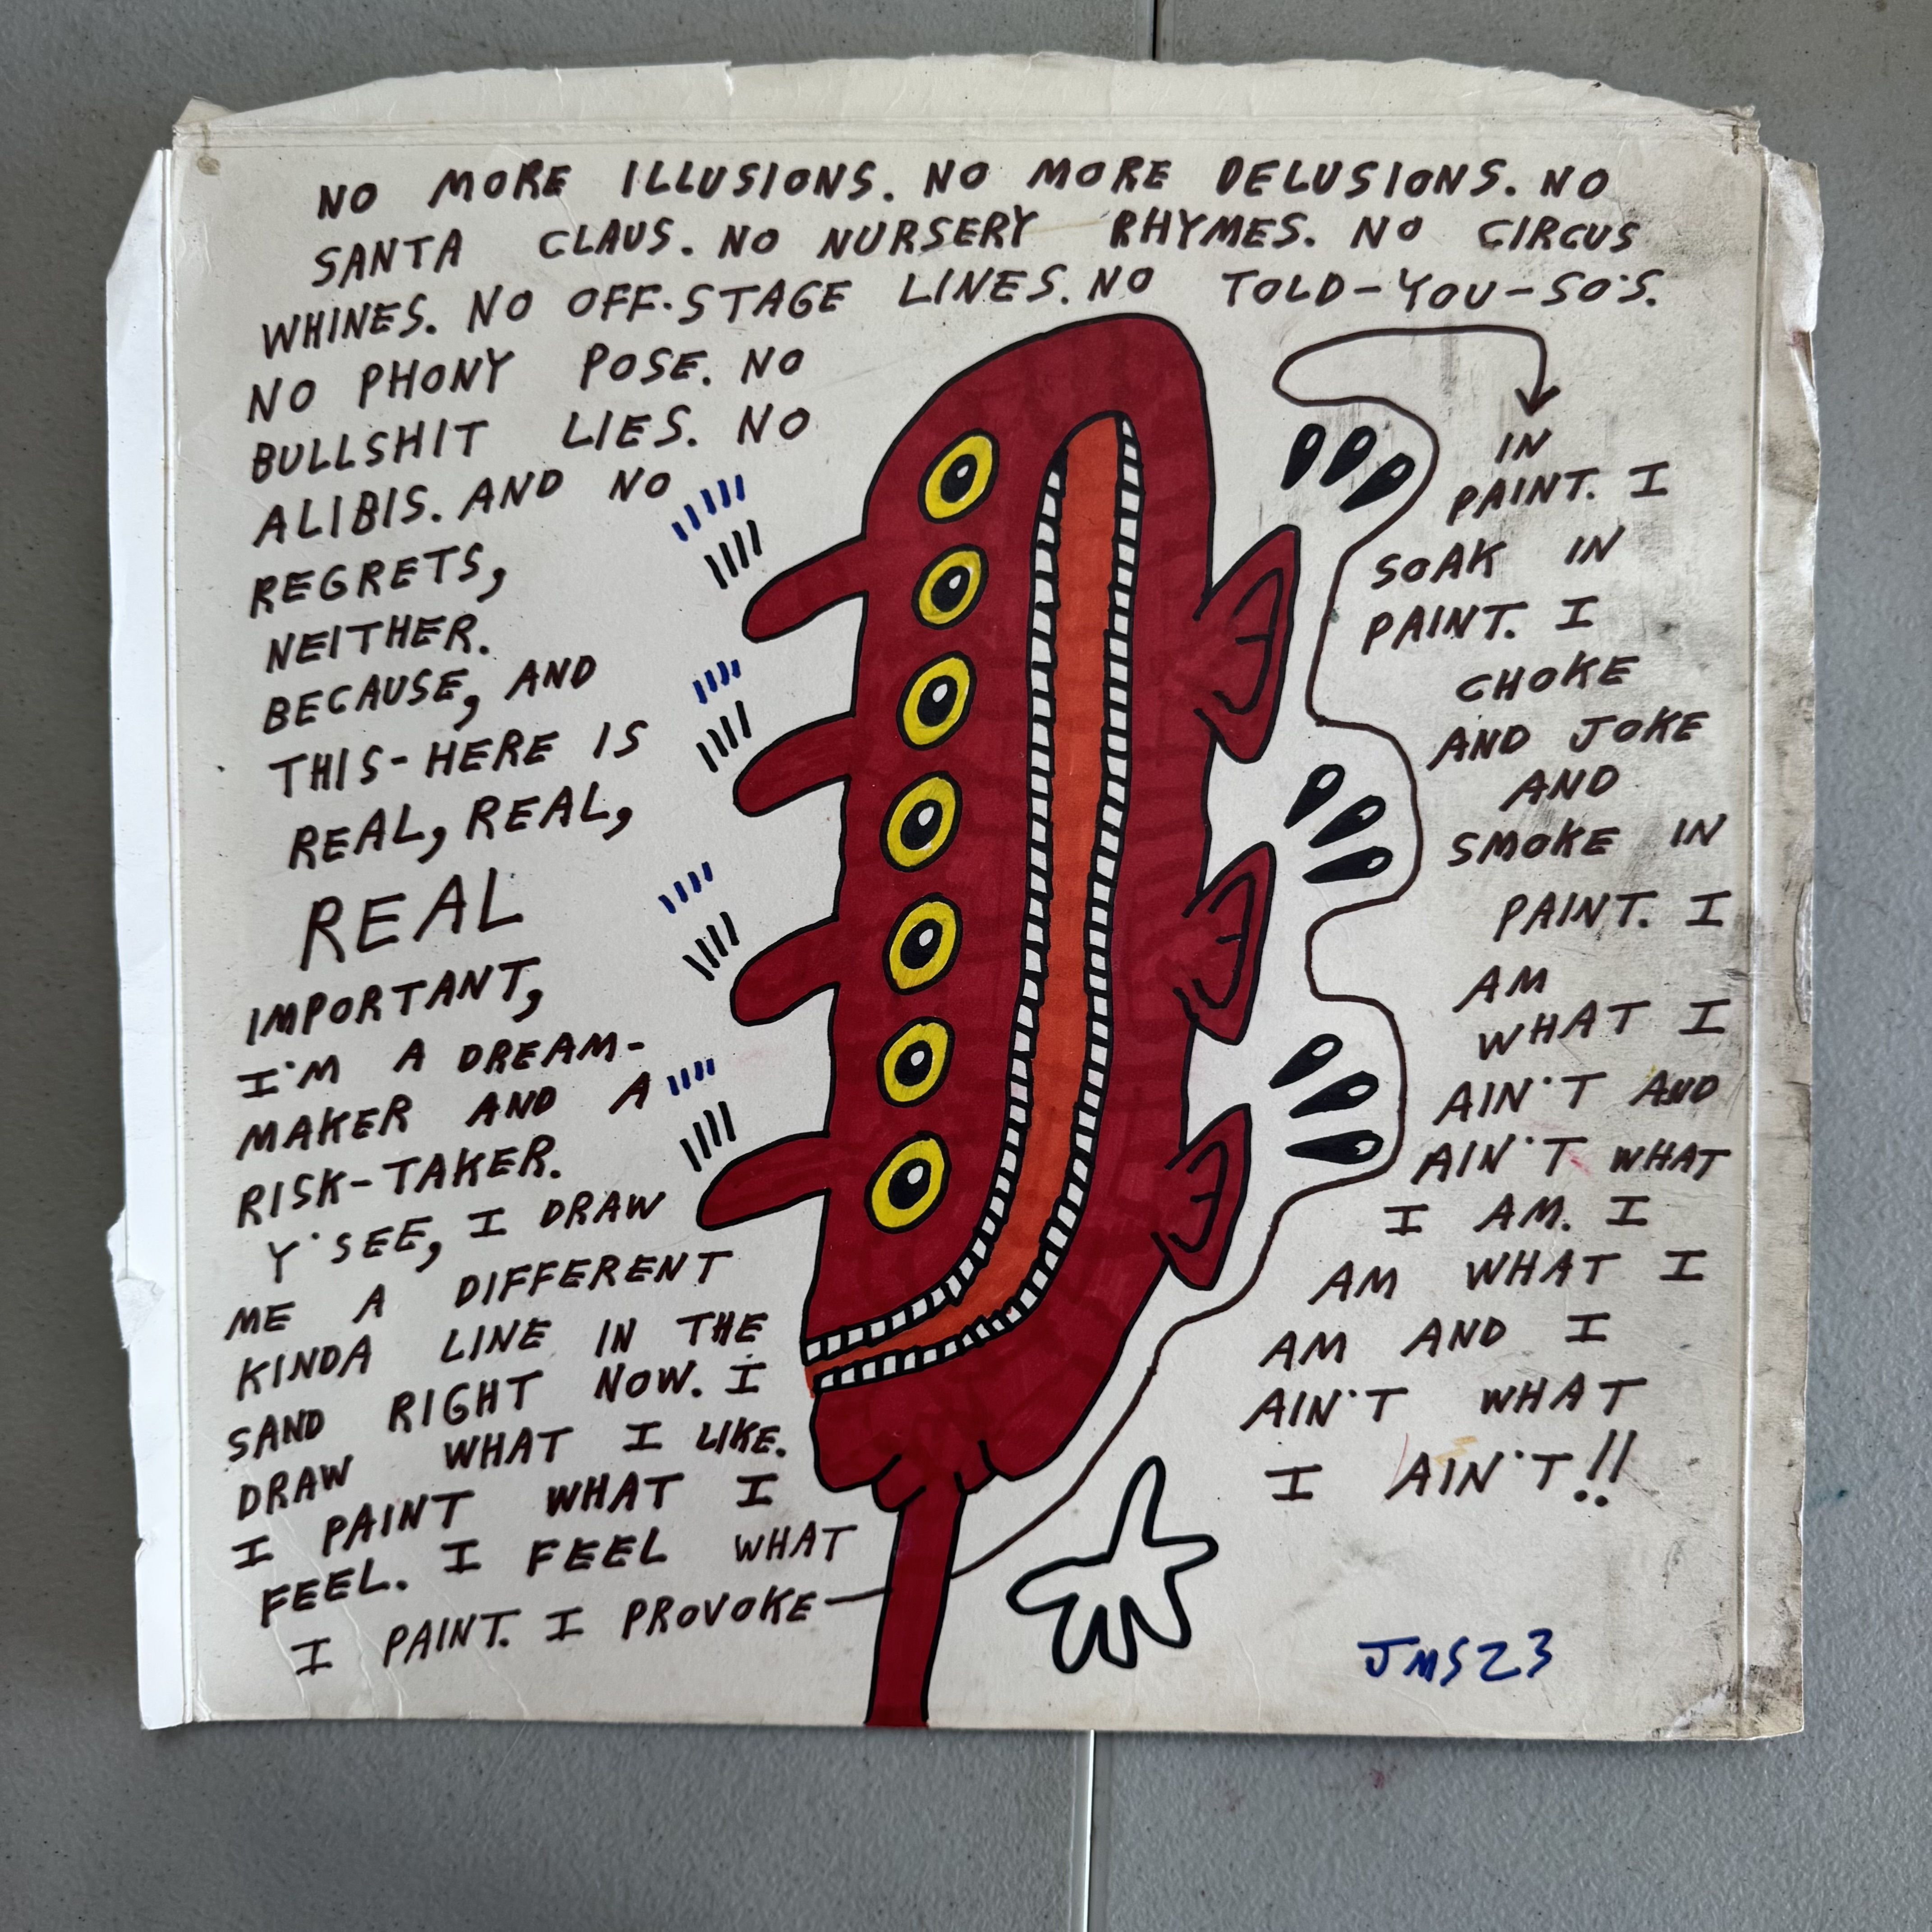 NO MORE ILLUSIONS. NO MORE DELUSIONS. NO
SANTA CLAUS. NO NURSERY RHYMES. NO CIRCUS
WHINES. NO OFF-STAGE LINES. NO TOLD-YOU-SO'S.
NO PHONY POSE. NO
BULLSHIT LIES. NO
ALIBIS. AND NO
REGRETS,
NEITHER.
BECAUSE, AND
THIS-HERE IS
REAL, REAL,
REAL
IMPORTANT,
I'M A DREAM-
MAKER AND A
RISK-TAKER.
Y'SEE, I DRAW
ME A DIFFERENT
KINDA LINE IN THE
SAND RIGHT NOW. I
DRAW WHAT I LIKE.
I PAINT WHAT I
FEEL. I FEEL WHAT
I PAINT. I PROVOKE
IN
PAINT. I
SOAK IN
PAINT. I
CHOKE
AND JOKE
AND
SMOKE IN
PAINT. I
AM
WHAT I
AIN'T AND
AIN'T WHAT
I AM. I
AM WHAT I
AM AND I
AIN'T WHAT
I AIN'T!!
JMS23